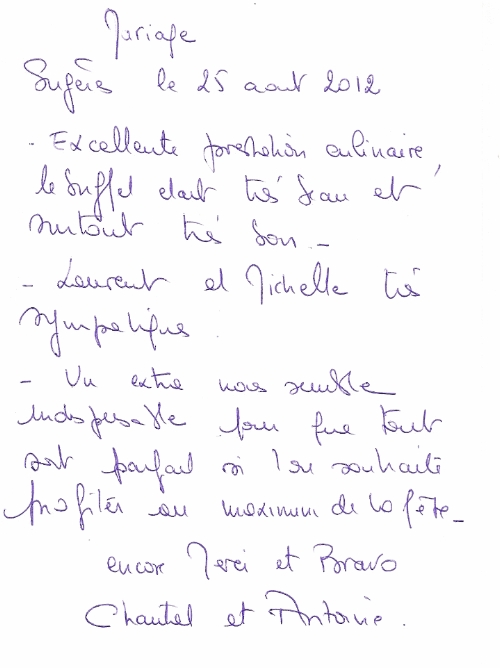 Mariage
Surgères le 25 aout 2012
- Excellente prestation culinaire,
le buffet était très beau et
surtout très bon. -
- Laurent et Michelle très
sympatiques
- Un extra nous semble
indispensable pour que tout
soit parfait si l'on souhaite
profiter au maximum de la fête -
encore Merci et Bravo
Chantal et Antoine.